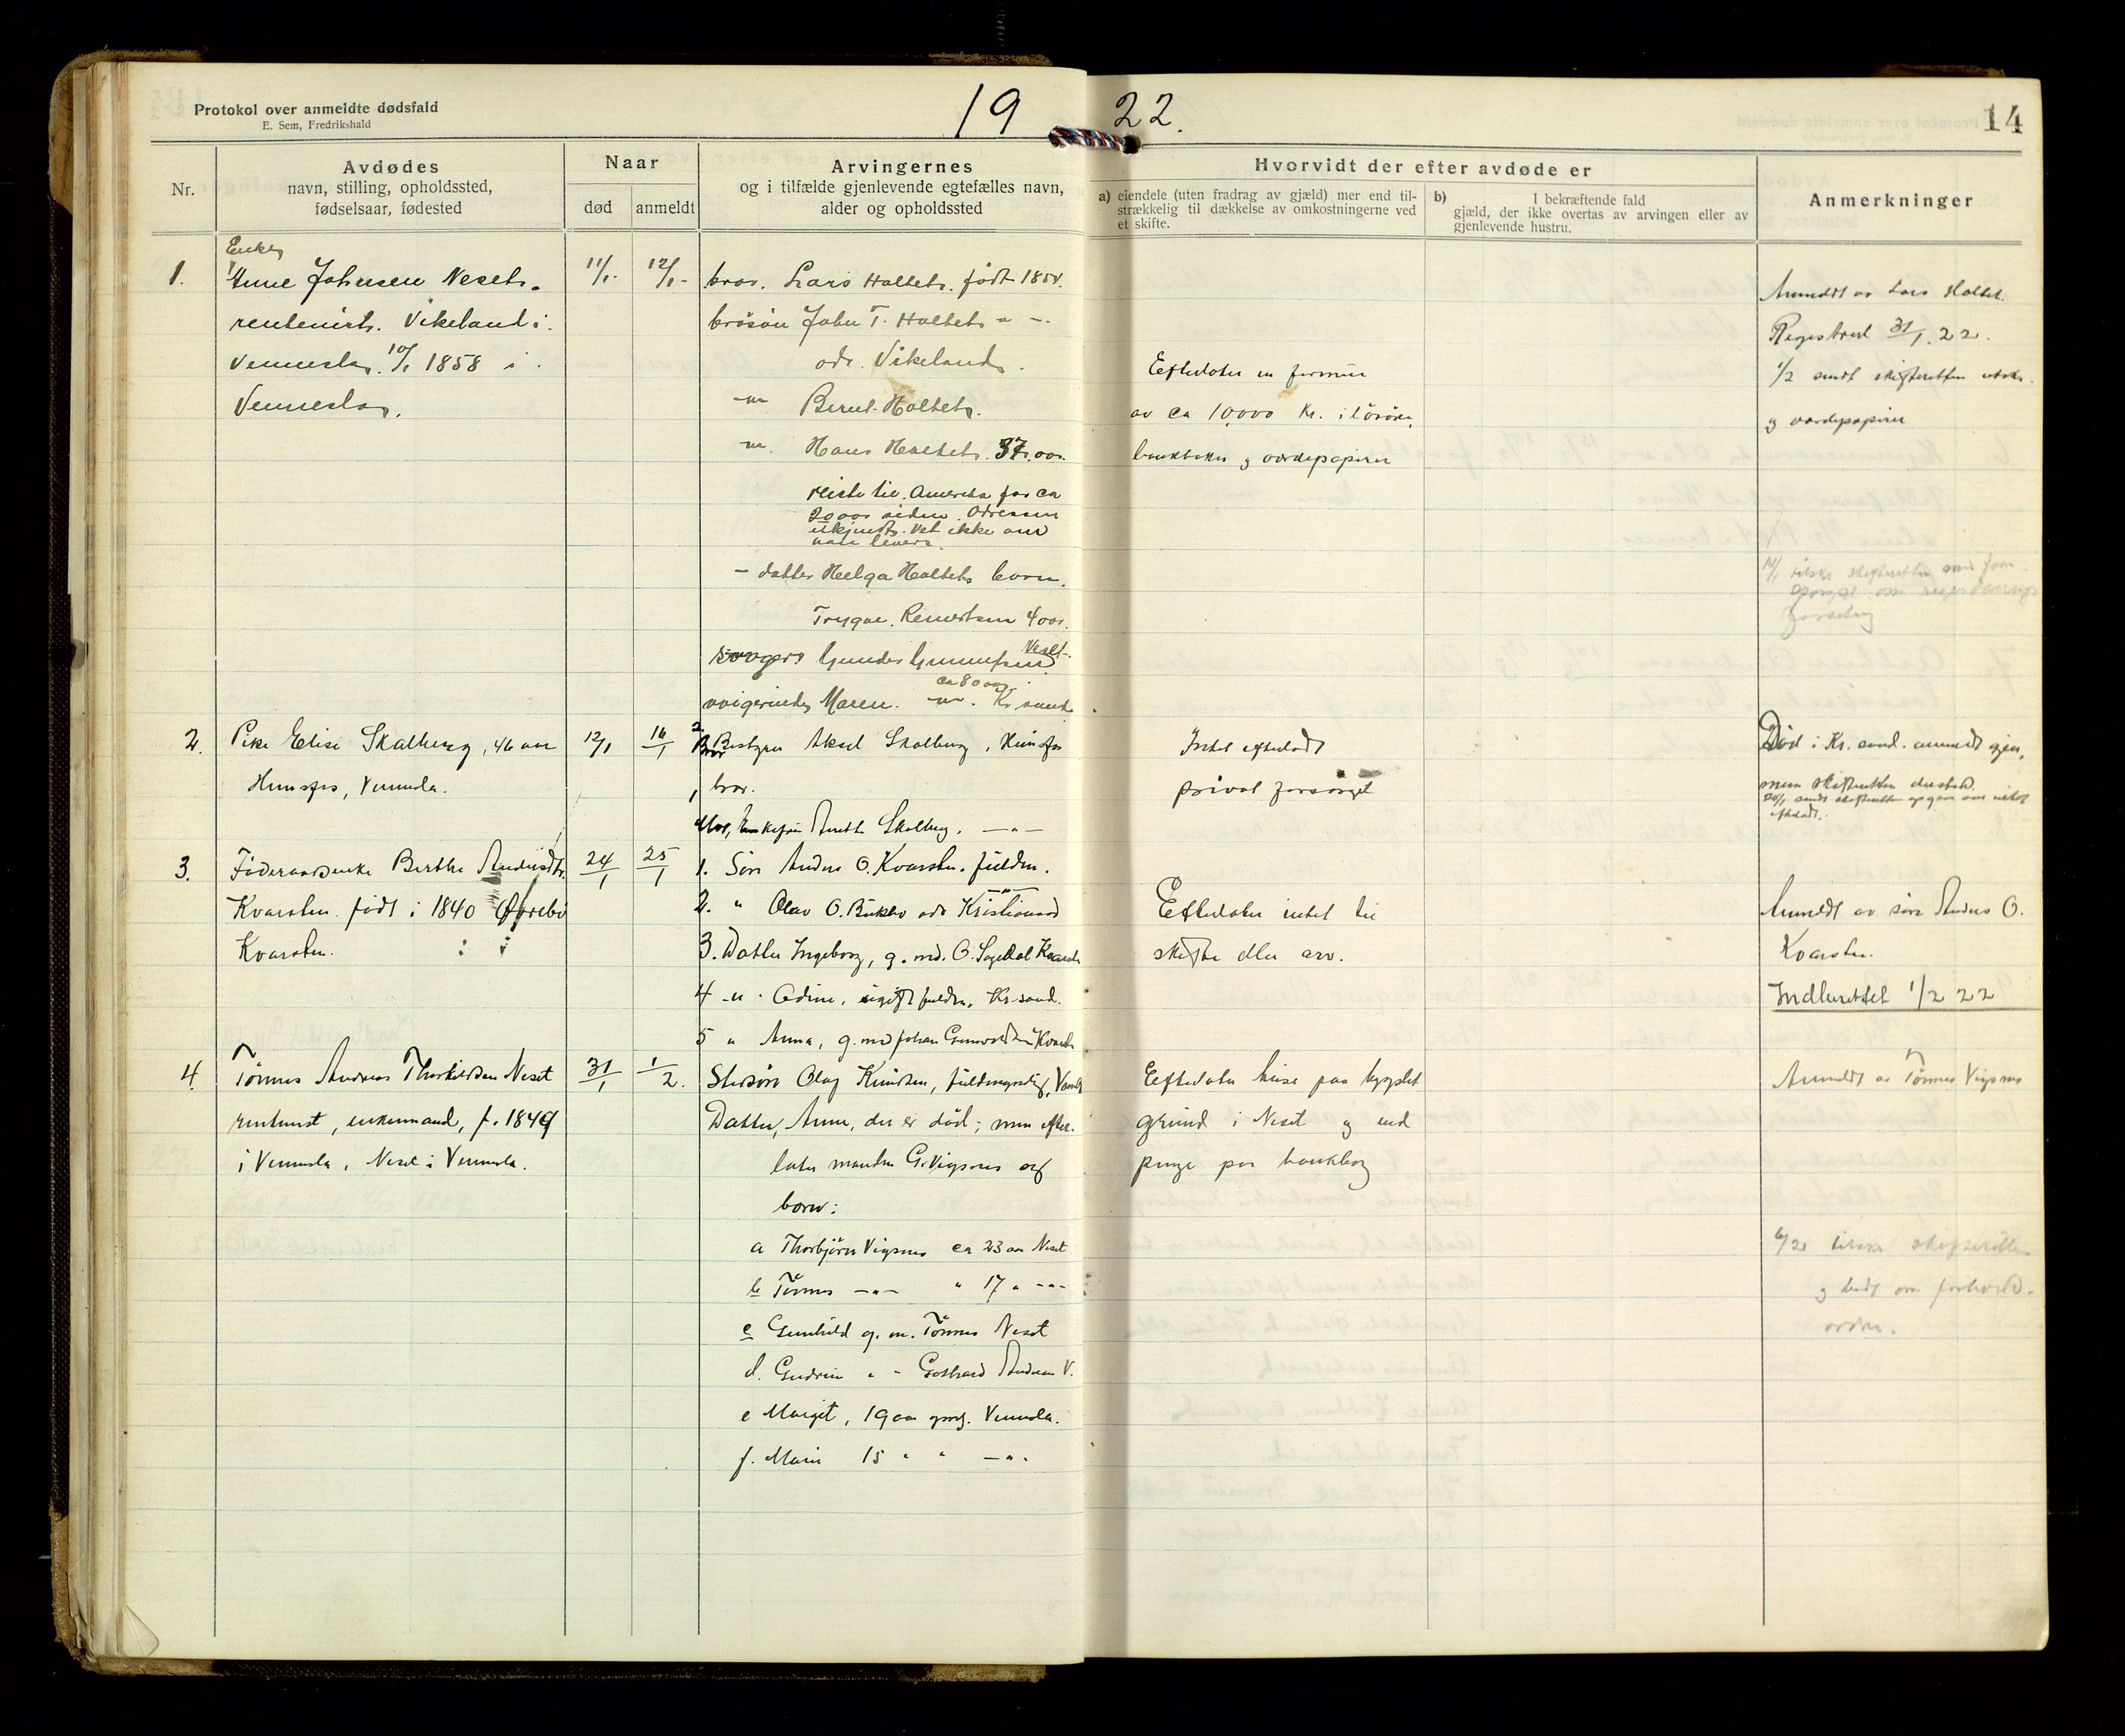 Protokol over anmeldte dødsfald
E. Sem, Fredrikshald
19 22.
14
Nr.
Avdødes
navn, stilling, opholdssted,
fødselsaar, fødested
Naar
død
anmeldt
Arvingernes
og i tilfælde gjenlevende egtefælles navn,
alder og opholdssted
Hvorvidt der efter avdøde er
a) eiendele (uten fradrag av gjæld) mer end til-
strækkelig til dækkelse av omkostningerne ved
et skifte.
b) I bekræftende fald
gjæld, der ikke overtas av arvingen eller av
gjenlevende hustru.
Anmerkninger
1.
Enke
Anne Johnsen Neset.
rentenist. Vikeland i
Vennesla. 10/1 1858 i
Vennesla.
11/1.
12/1.
bror. Lars Holtet. født 1854.
brósón John T. Holtet
adr. Vikeland.
Bernt Holtet.
Hans Holtet. 37 aar.
reiste til Amerika for ca
20 aar siden. Adressen
ukjendt. Vet ikke om
han lever.
- datter Helga Holtets barn.
Trygve Reinertsen 4 aar.
svoger Gunder Gunnufsen Neset.
svigerinde Maren. ca 80 aar. Kr sand.
Efterlater en formue
av ca 10,000 Kr. i lösöre,
bankböker og værdepapirer
Anmeldt av Lars Holtet.
Registreret 31/1. 22.
1/2 sendt skifteretten utskr.
og værdepapirer
2.
Pike Elise Skalberg, 46 aar
Hunsfos, Vennesla.
12/1
16/1
Bror Bestyrer Aksel Skalberg, Hunsfos
, bror.
Mor, Enkefru Anette Skalberg. -"-
Intet efterladt
privat forsörget
Död i Kr. sand. anmeldt gjen-
nem skifteretten dersteds.
20/1 sendt skifteretten opgave om intet
efterladt.
3.
Föderaadsenke Berthe Andersdtr.
Kvarsten født i 1840 Øvrebö
Kvarsten.
24/1
25/1
1. Sön Anders O. Kvarsten. fuldm.
2. " Olav O. adr Kristiansand
3. Datter Ingeborg, g. md. O. Sagedal Kvarsten
4 -"- Odine, ugift fuldm. Kr-sand.
5 " Anna, g. md Johan Kvarsten
Efterlater intet til
skifte eller arv.
Anmeldt av sön Anders O.
Kvarsten.
Indberettet 1/2 22
4.
Tönnes Andreas Thorkildsen Neset
rentenist, enkemand, f. 1849
i Vennesla, Neset i Vennesla.
31/1
1/2.
Stedsön Olaf Knudsen, fuldmyndig, Vennesla
Datter, Anne, der er död; men efter-
later manden G. Vigsnes og
barn:
a Thorbjörn Vigsnes ca 23 aar Neset
b Tönnes -"- " 17 " -"-
c Gunhild g. m. Tönnes Neset
d. Gudrun " - Gothard Andersen V.
e Margit, 19 aar Vennesla.
f. Marie 15 " " -"-
Efterlater huse paa bygslet
grund i Neset og end
penge paa bankbog
Anmeldt av Tönnes Vigsnes
6/2 tilskr skifteretten
og bedt om forhold-
ordre.